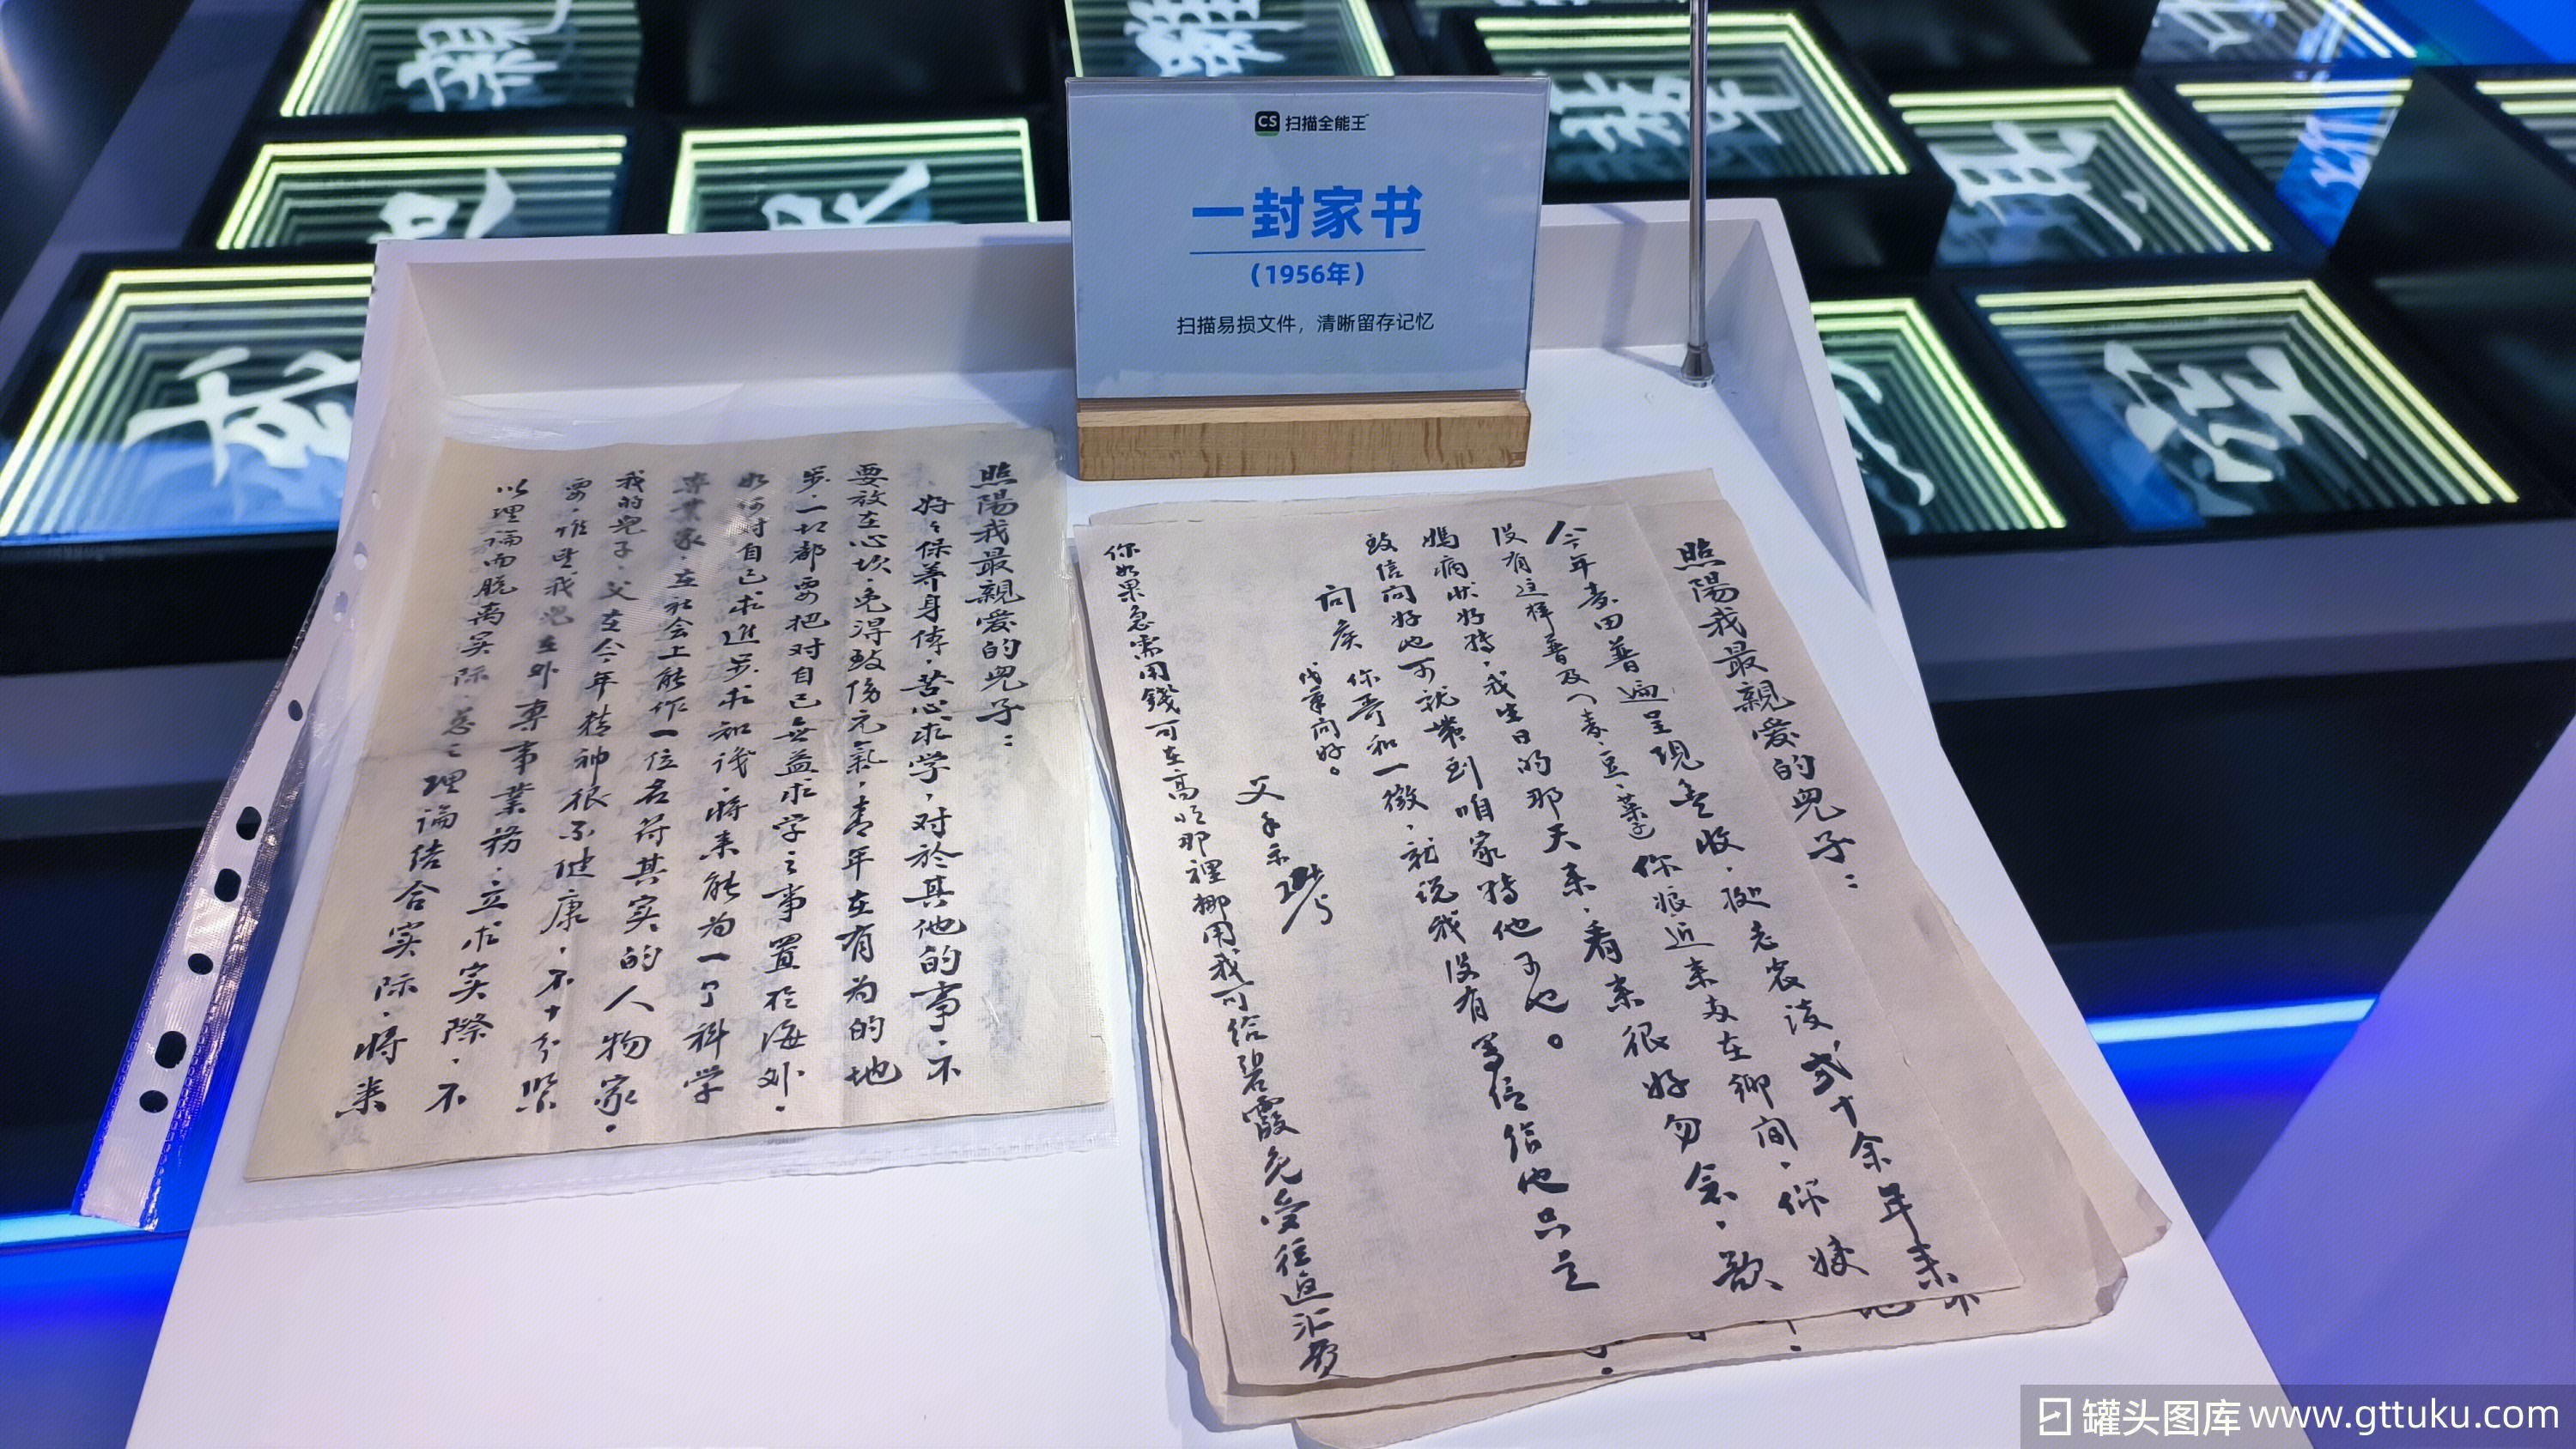 CS 扫描全能王
一封家书
（1956年）
扫描易损文件，清晰留存记忆
照陽我最親爱的兒子：
好々保养身体，苦心求学，对於其他的事，不
要放在心坎，免得致伤元氣，青年在有为的地
步，一切都要把对自己無益求学之事置於海外，
如何对自己求進步求知识，将来能为一个科学
專業家，在社会上能作一位名符其实的人物家，
我的兒子，父在今年精神很不健康，不十分紧
要，惟望我兒在外專事業務，立求实際，不
以理論而脱离实际，总之理論结合实际，将来
照陽我最親爱的兒子：
今年麦田普遍呈現丰收，挺老农谈，式十余年来
没有这样普及（麦，豆，菜）你娘近来亦在鄉间，你嫂
媽病状好转，我生日的那天来，看来很好勿念，歆
致信问好也可就带到咱家转他可也。
你哥和一徵，就说我没有写信给他只是
问候
代筆问好。
父手示
你如果急需用錢可在高 那裡挪用我可给碧霞免受往返汇费
罐头图库 www.gttuku.com